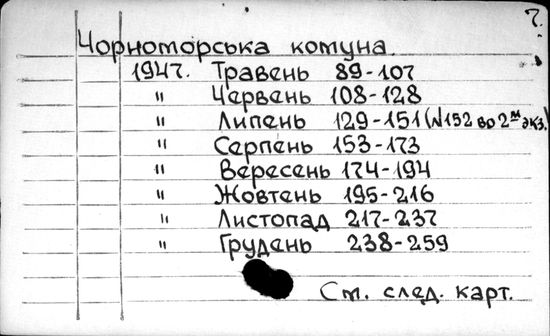 7.
Чорноморська комуна.
1947. Травень 89-107
" Червень 108-128
" Липень 129-151 (N152 во 2м экз.)
" Серпень 153-173
" Вересень 174-194
" Жовтень 195-216
" Листопад 217-237
" Грудень 238-259
См. след. карт.